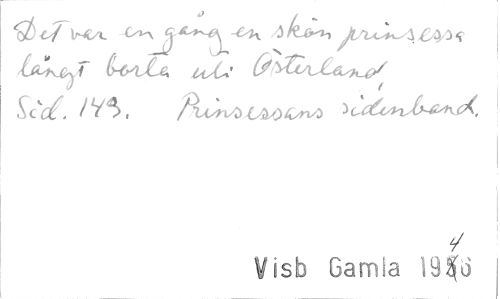 Det var en gång en skön prinsessa
långt borta uti Österland,
Sid. 143. Prinsessans sidenband.
Visb Gamla 1946